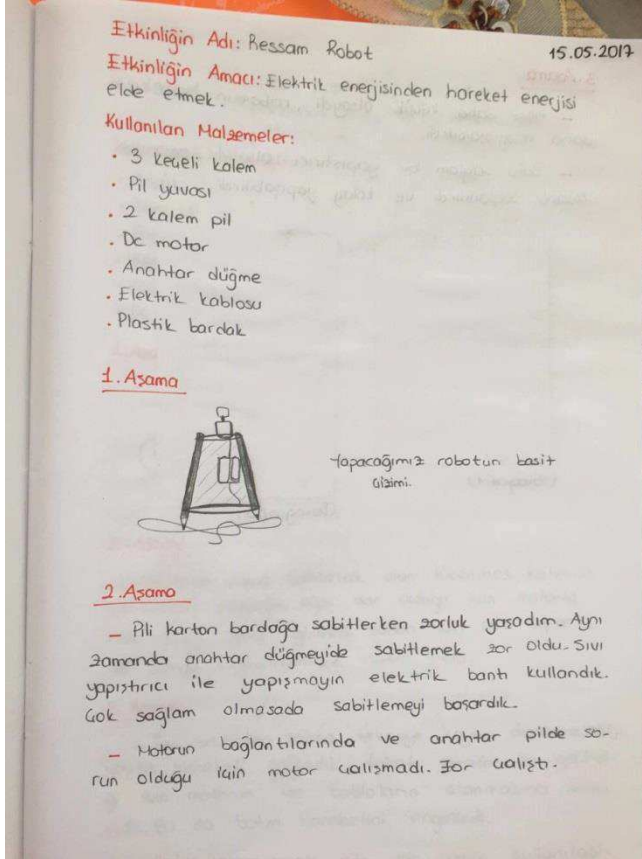 Etkinliğin Adı: Ressam Robot
15.05.2017
Etkinliğin Amacı: Elektrik enerjisinden hareket enerjisi
elde etmek.
Kullanılan Malzemeler:
• 3 keçeli kalem
• Pil yuvası
• 2 kalem pil
• Dc motor
• Anahtar düğme
• Elektrik kablosu
• Plastik bardak
1. Aşama
Yapacağımız robotun basit
çizimi.
2. Aşama
– Pili karton bardağa sabitlerken zorluk yaşadım. Aynı
zamanda anahtar düğmeyide sabitlemek zor oldu. Sıvı
yapıştırıcı ile yapışmayın elektrik bantı kullandık.
Çok sağlam olmasada sabitlemeyi başardık.
– Motorun bağlantılarında ve anahtar pilde so-
run olduğu için motor çalışmadı. Zor çalıştı.